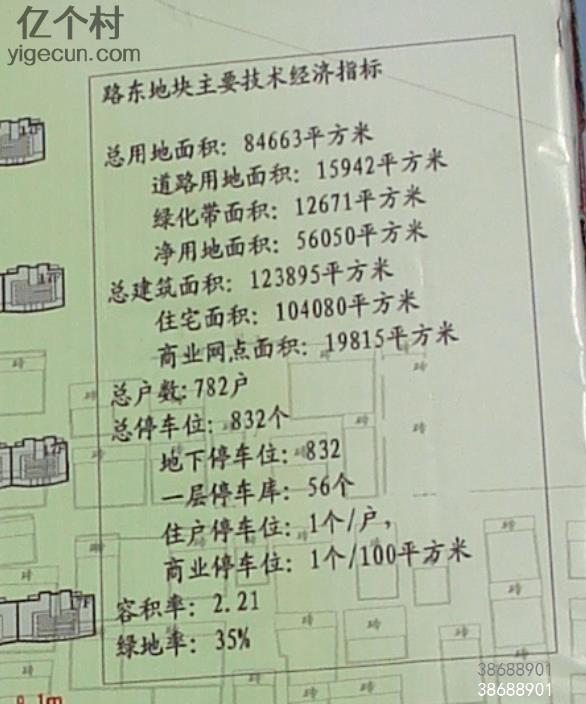 亿个村
yigecun.com
路东地块主要技术经济指标
总用地面积：84663平方米
道路用地面积：15942平方米
绿化带面积：12671平方米
净用地面积：56050平方米
总建筑面积：123895平方米
住宅面积：104080平方米
商业网点面积：19815平方米
总户数：782户
总停车位：832个
地下停车位：832
一层停车库：56个
住户停车位：1个/户，
商业停车位：1个/100平方米
容积率：2.21
绿地率：35%
38688901
38688901